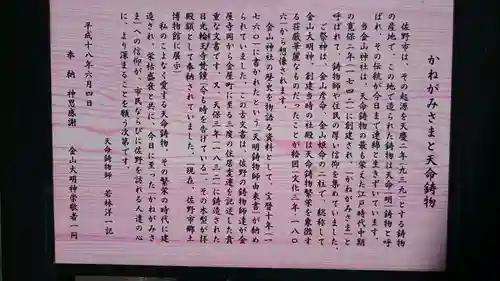 かねがみさまと天命鋳物
佐野市は、その起源を天慶二年(九三九)とする鋳物
の産地で、この地で造られた鋳物は天命(明)鋳物と呼
ばれ、その伝統が今日まで連綿と生きずいています。
当金山神社は、天命鋳物の最も栄えた江戸時代中期
の寛保二年(一七四二)に創建され、「かねがみさま」と
呼ばれて、鋳物師や住民の篤い信仰を集めていました。
ご祭神は、金山彦命・金山姫命の二柱で、総称して
金山大明神、創建当時の社殿は天命鋳物繁栄を象徴す
る荘厳華麗なものだったことが絵図(文化三年・一八〇
六)から想像されます。
金山神社の歴史を物語る資料として、宝暦十年(一
七六〇)に書かれたという「天明鋳物師由来書」が納め
られていました。この古文書は、佐野の鋳物師達が金
屋寺岡から金屋町に至る三度の住居変遷を記述した貴
重な文書です。又、天保三年(一八三二)に鋳造された
日光輪王寺梵鐘(今も時を告げている)、その木型が拝
殿額として奉納されていました。(現在、佐野市郷土
博物館に展示)
私のこよなく愛する天命鋳物、その繁栄の時代に建
造され、栄枯盛衰と共に、今日に至った「かねがみさ
ま」への信仰が、市民ならびに佐野を訪れる人達の心
に、より深まることを願う次第です。
天命鋳物師 若林洋一記
平成十八年六月四日
奉納 神恩感謝
金山大明神崇敬者一同